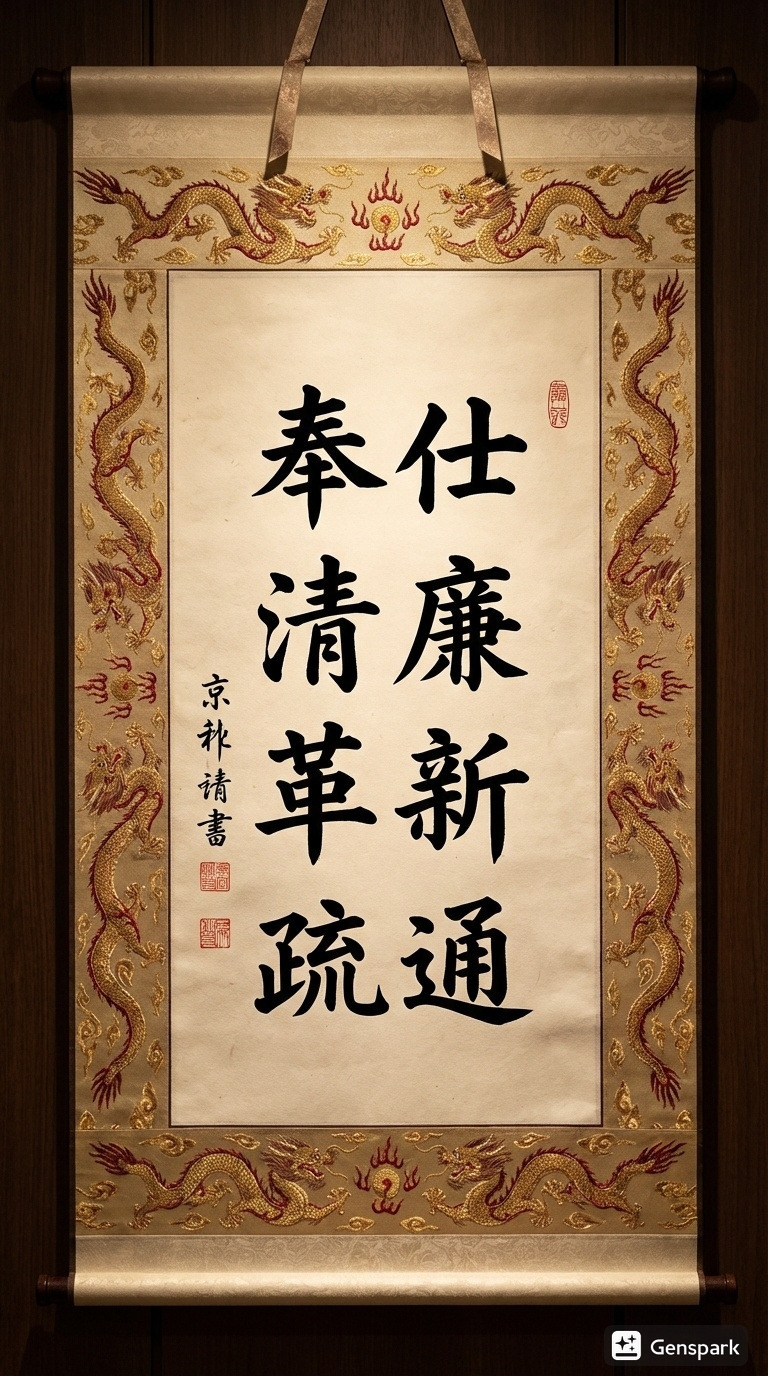 奉仕
清廉
革新
疏通
京 請書
Genspark